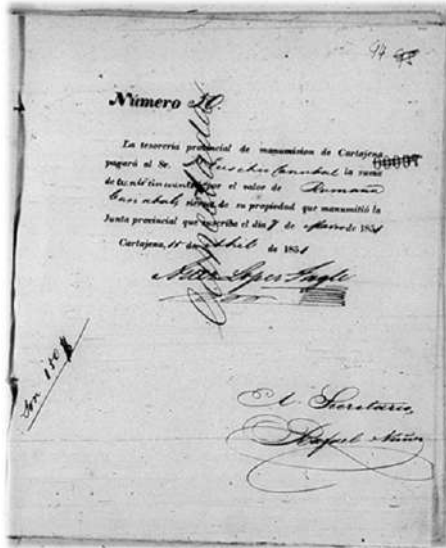 94
Número 50.
La tesorería provincial de manumision de Cartajena
00007
pagará al Sr. Eusebio Canabal la suma
de ciento cincuenta por el valor de Romana
Canabal, sierva de su propiedad que manumitió la
Junta provincial que suscribe el dia 7 de Marzo de 1851
Cartajena, 15 de Abril de 1851
Cancelada
Son 150 $
El Secretario,
Rafael Núñez